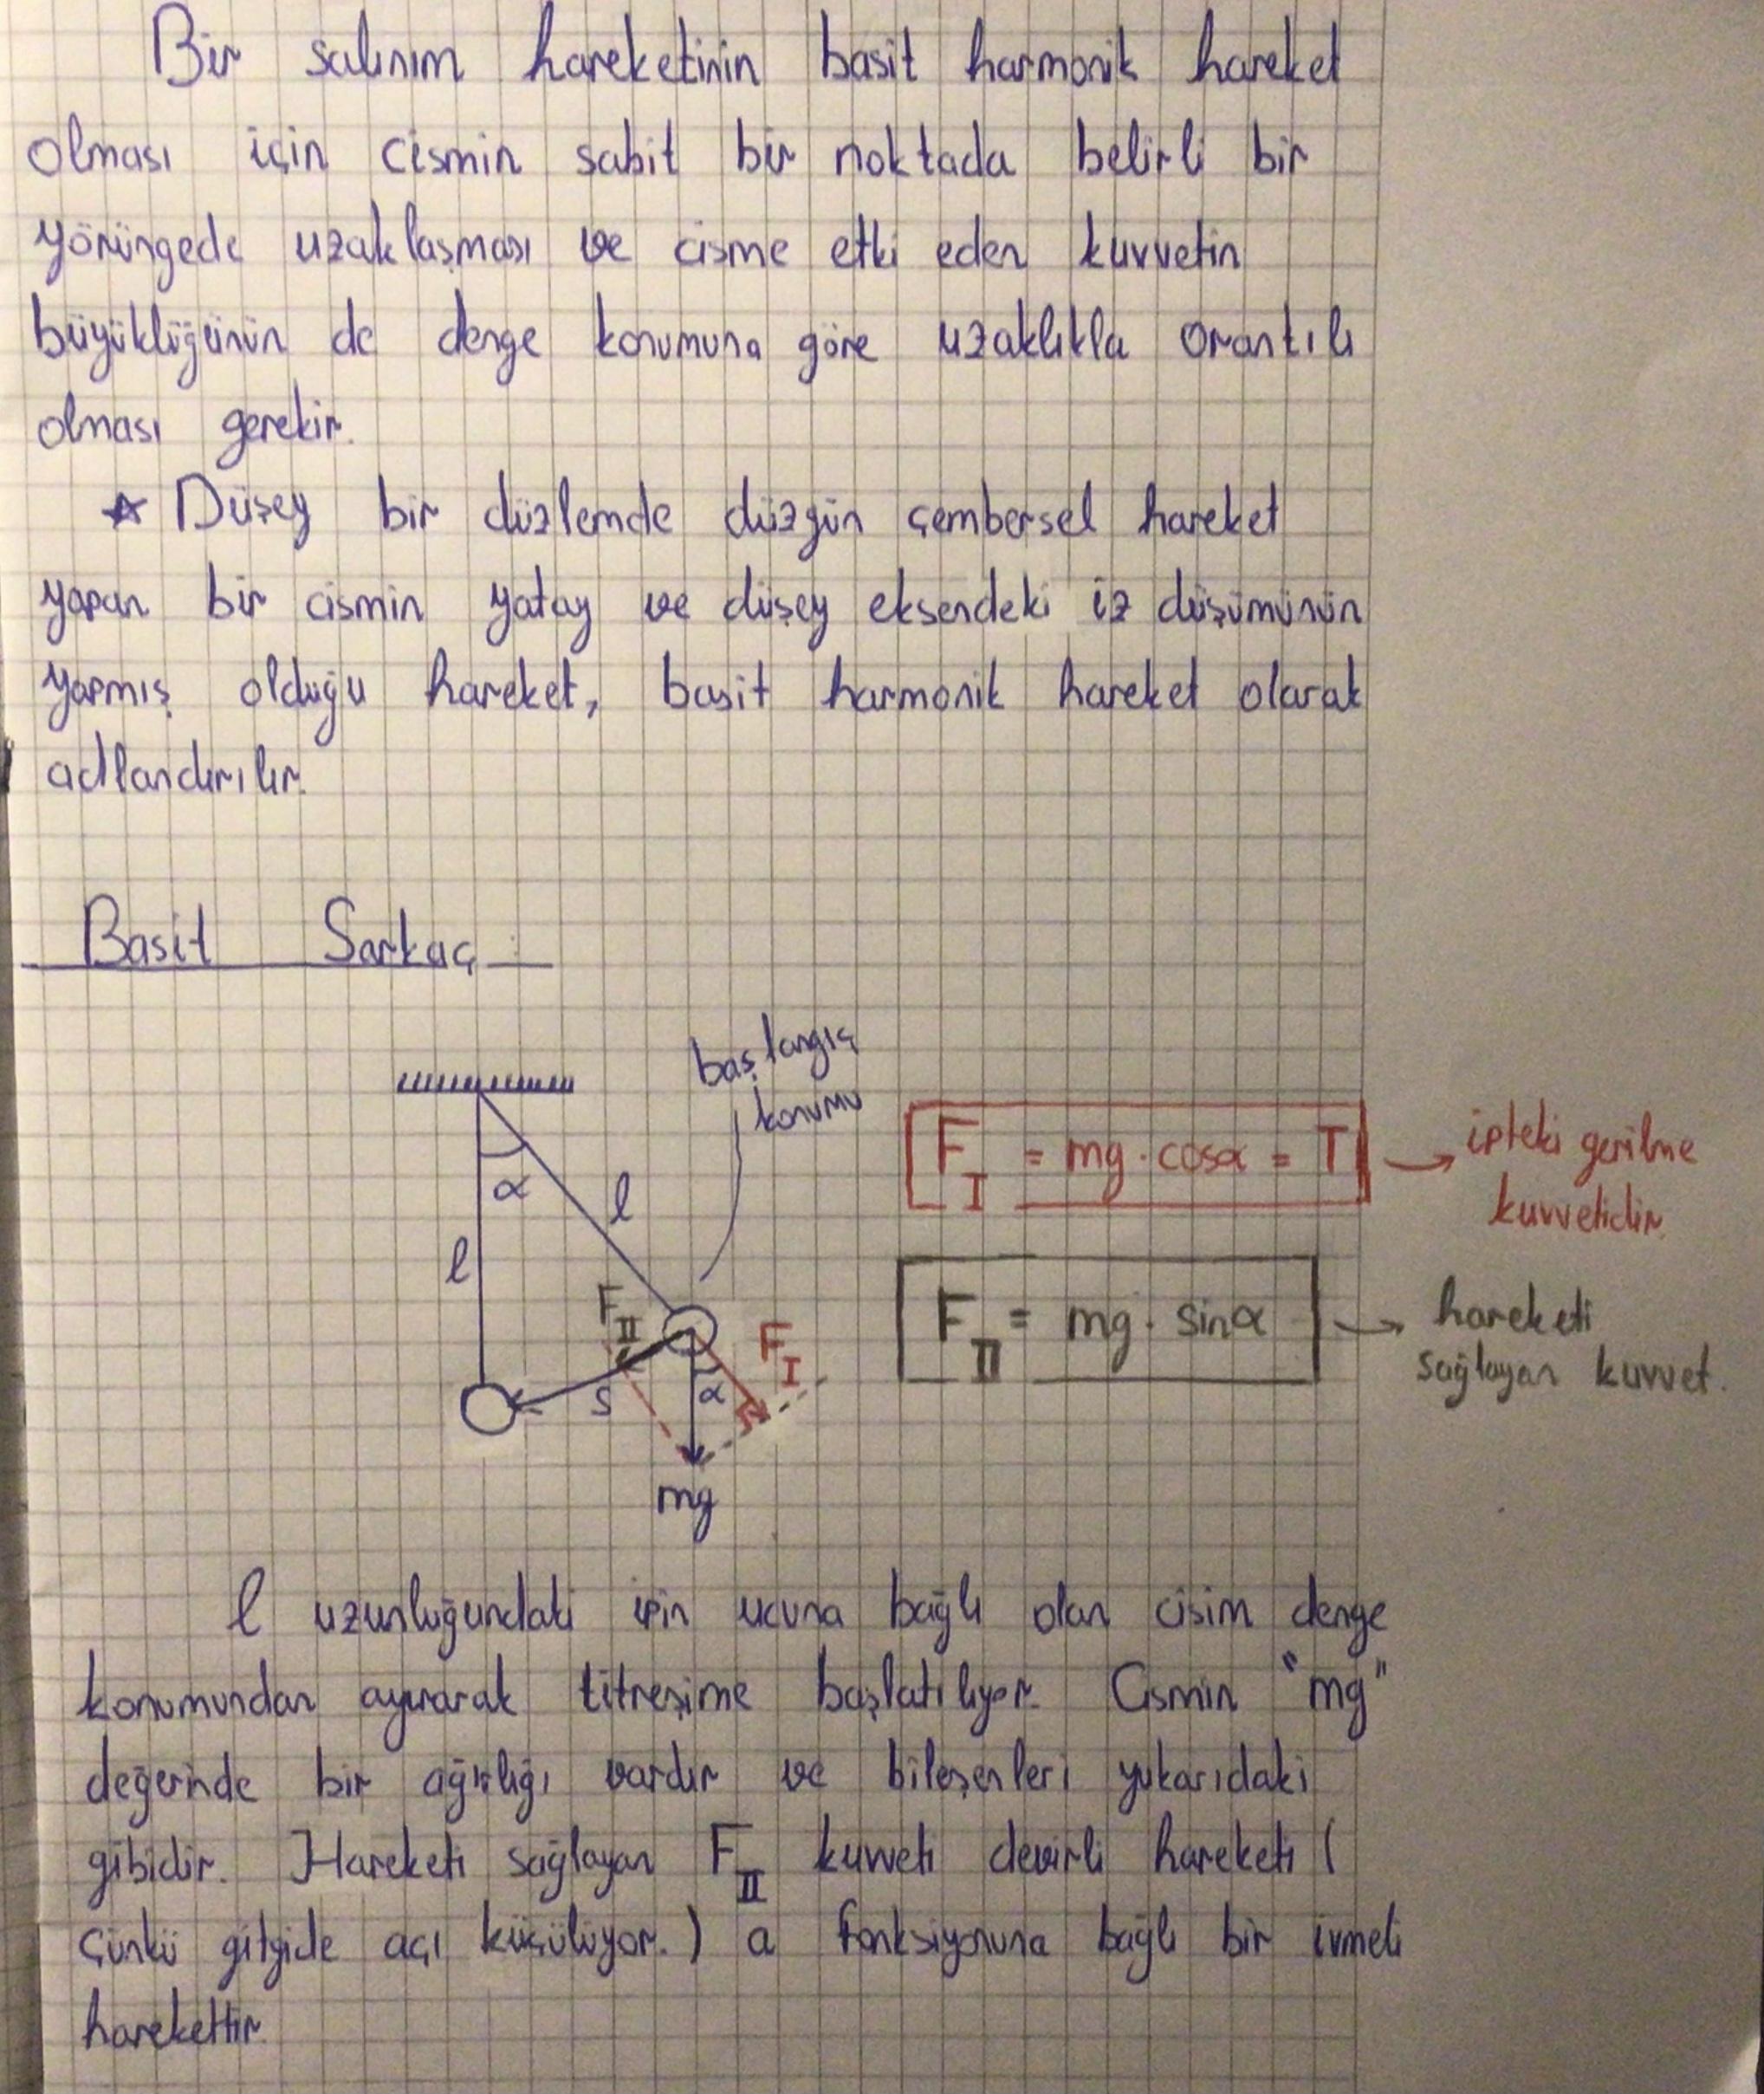 Bir salınım hareketinin basit harmonik hareket
olması için cismin sabit bir noktada belirli bir
yörüngede uzaklaşması ve cisme etki eden kuvvetin
büyüklüğünün de denge konumuna göre uzaklıkla orantılı
olması gerekir.
☆ Düşey bir düzlemde düzgün çembersel hareket
yapan bir cismin yatay ve düşey eksendeki iz düşümünün
yapmış olduğu hareket, basit harmonik hareket olarak
adlandırılır.
Basit Sarkaç :
başlangıç
konumu
α
l
l
F_I = mg · cosα = T → ipteki gerilme
kuvvetidir.
F_II = mg · sinα → hareketi
sağlayan kuvvet.
F_II
F_I
s
α
mg
l uzunluğundaki ipin ucuna bağlı olan cisim denge
konumundan ayırarak titreşime başlatılıyor. Cismin "mg"
değerinde bir ağırlığı vardır ve bileşenleri yukarıdaki
gibidir. Hareketi sağlayan F_II kuvveti devirli hareketi (
çünkü gitgide açı küçülüyor.) a fonksiyonuna bağlı bir ivmeli
harekettir.